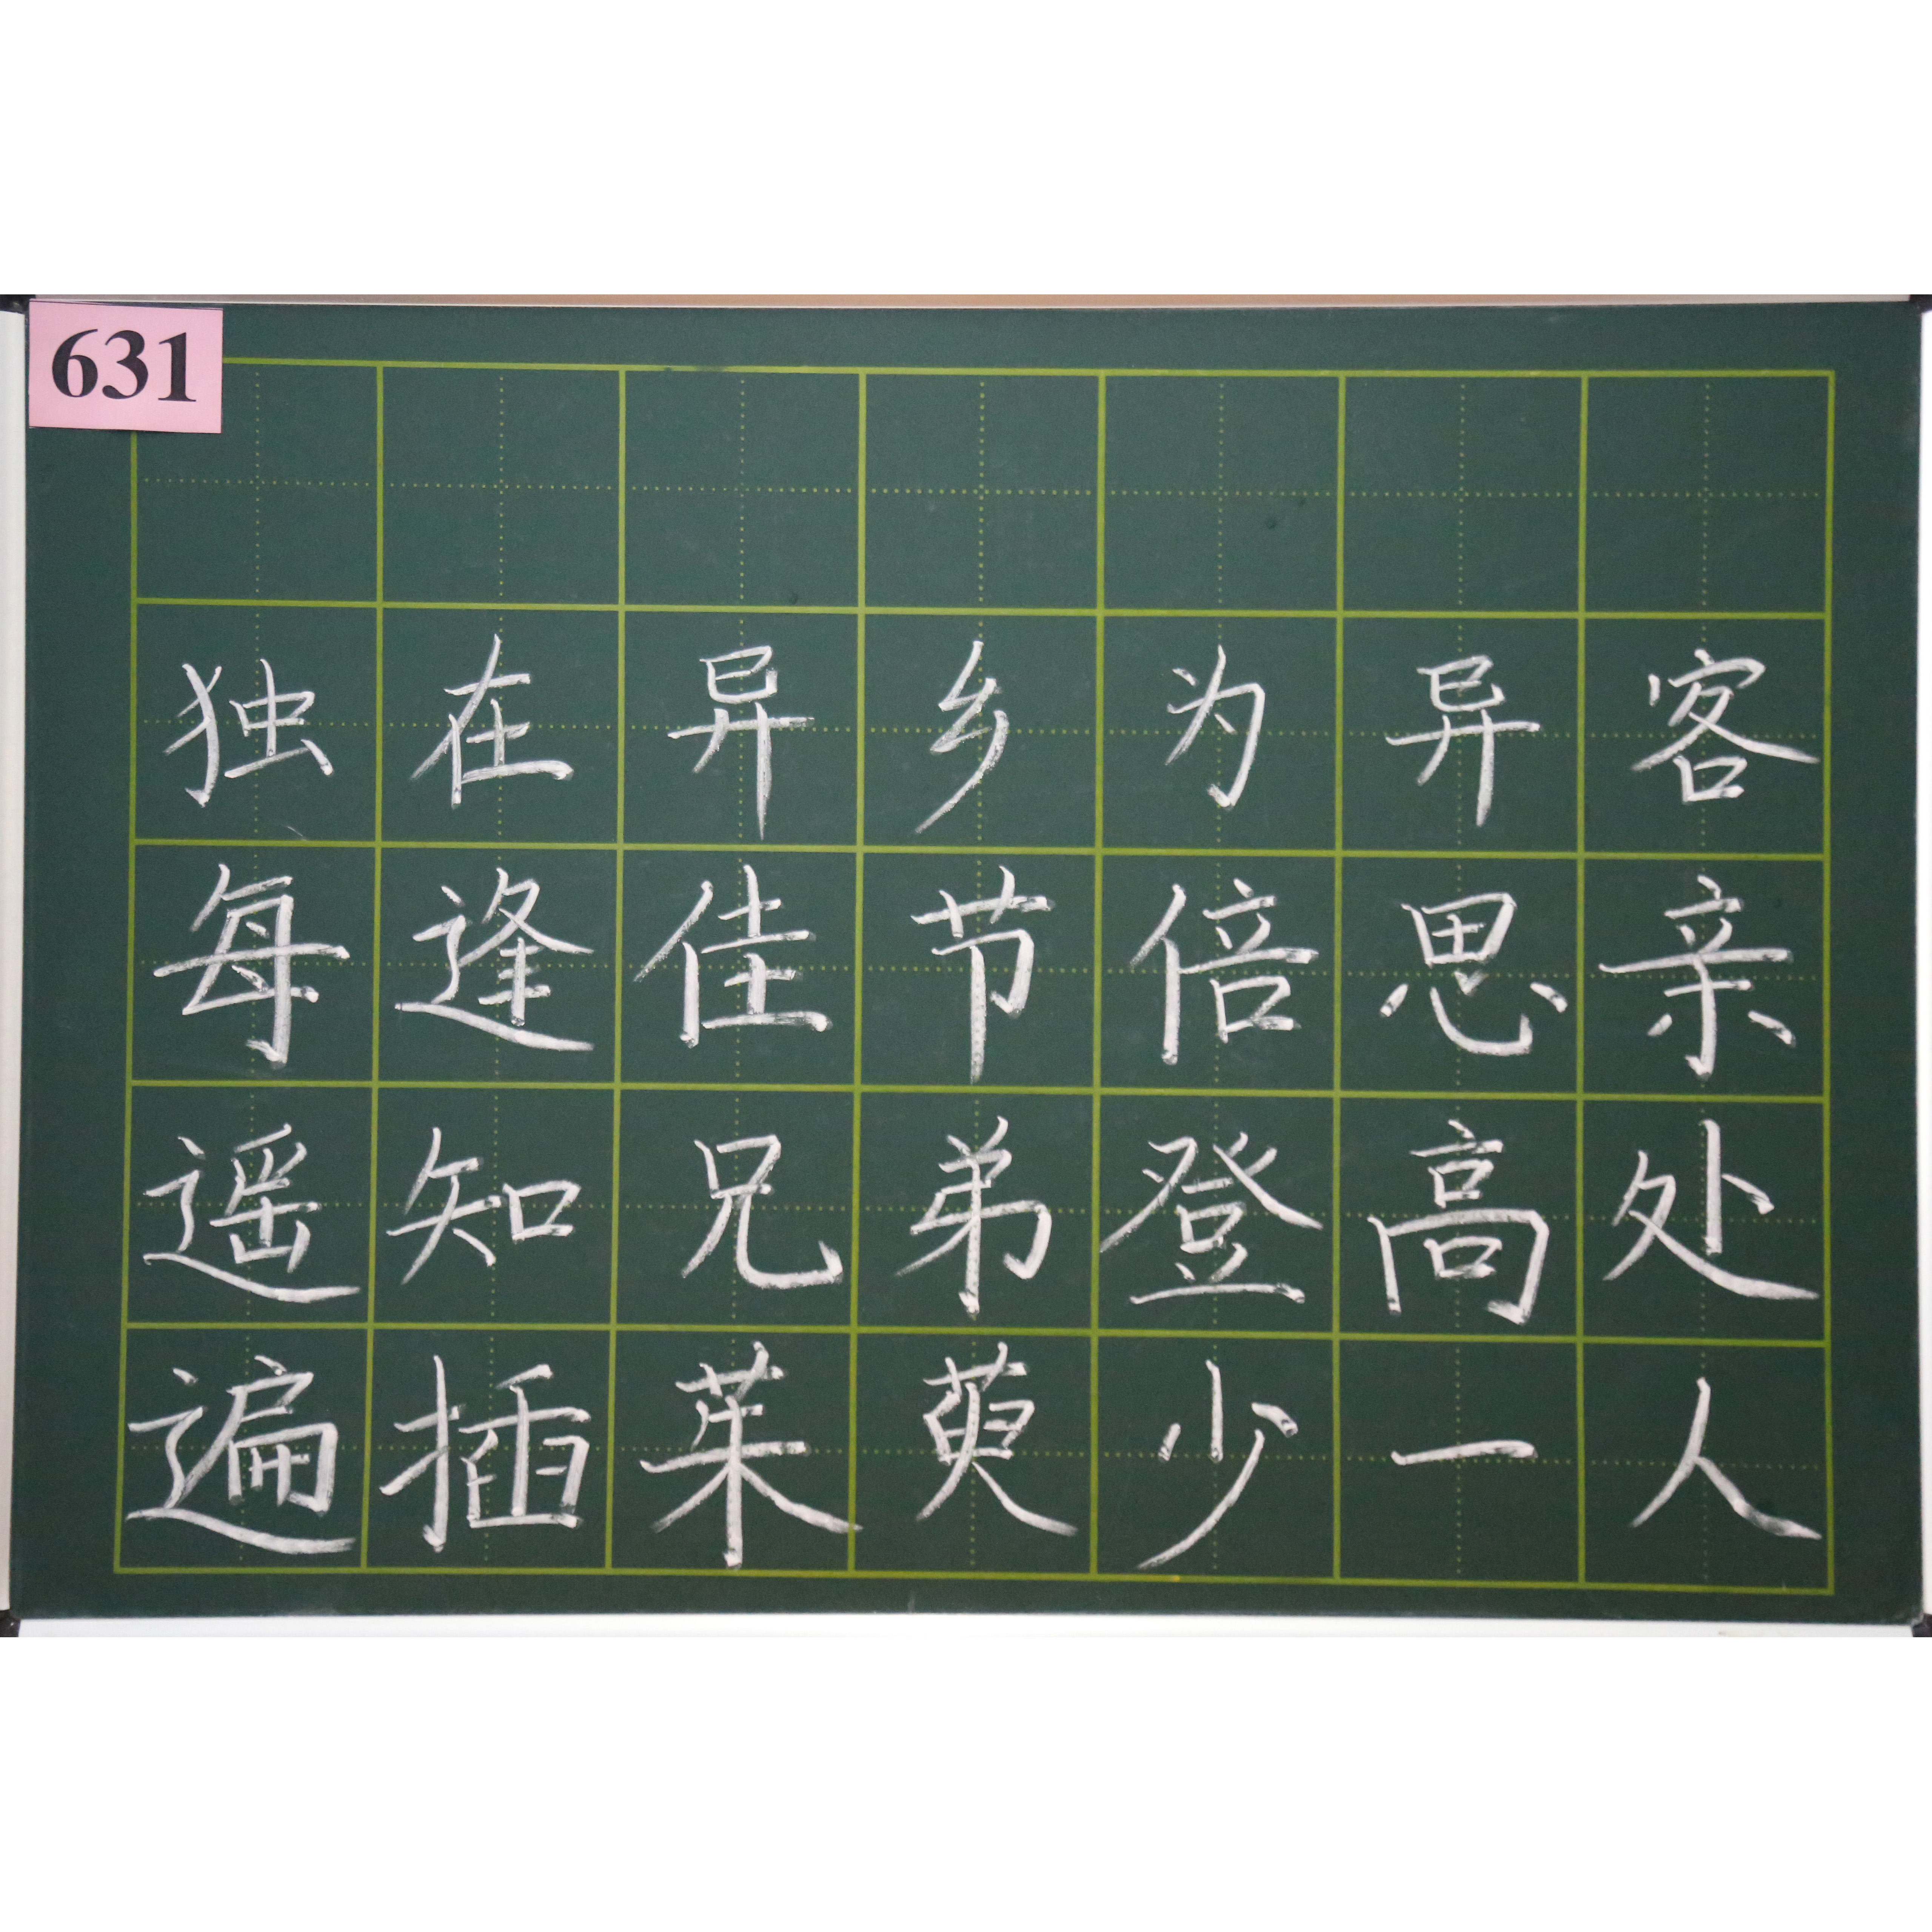 631
独在异乡为异客
每逢佳节倍思亲
遥知兄弟登高处
遍插茱萸少一人